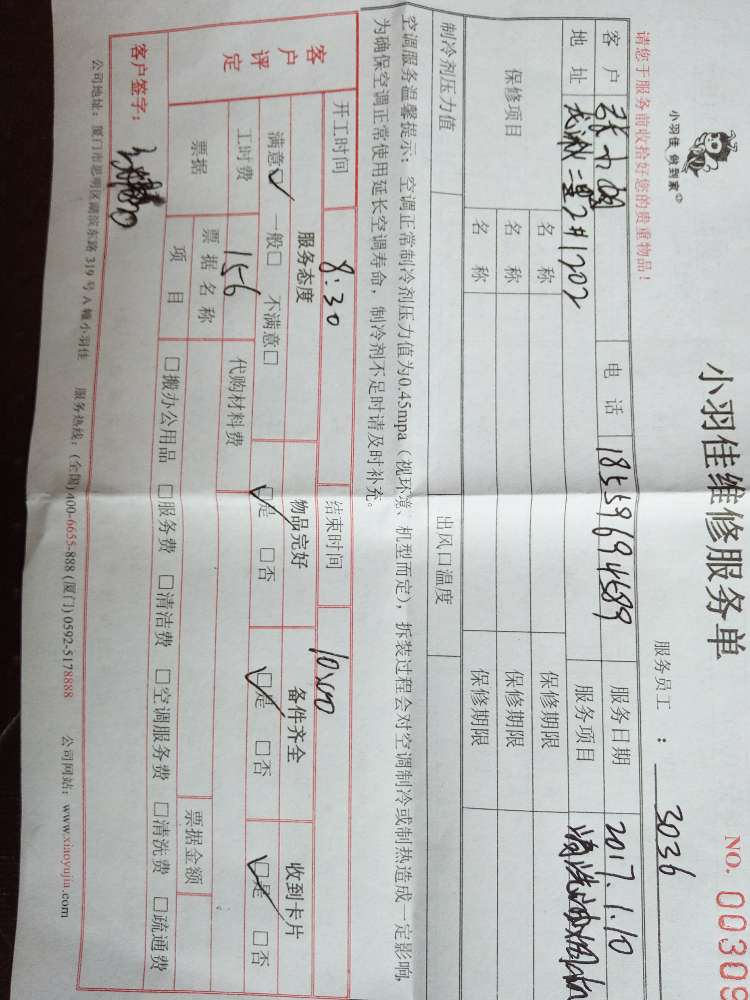 小羽佳 做到家
小羽佳维修服务单
NO. 00309
服务员工： 3036
请您于服务前收拾好您的贵重物品！
客户 电话 18559694589 服务日期 2017.1.10
地址 二里2#1202 服务项目 清洗油烟机
保修项目 名称 保修期限
名称 保修期限
名称 保修期限
制冷剂压力值 出风口温度
空调服务温馨提示：空调正常制冷剂压力值为0.45mpa（视环境、机型而定），拆装过程会对空调制冷或制热造成一定影响，
为确保空调正常使用延长空调寿命，制冷剂不足时请及时补充。
开工时间 8:30 结束时间 10:00
客户评定 服务态度 物品完好 备件齐全 收到卡片
满意☑ 一般□ 不满意□ ☑是 □否 ☑是 □否 ☑是 □否
工时费 156 代购材料费
票据 票据名称 票据金额
项目 □搬办公用品 □服务费 □清洁费 □空调服务费 □清洗费 □疏通费
客户签字：
公司地址：厦门市思明区湖滨东路 319 号 A 幢小羽佳 服务热线：(全国)400-6655-888 (厦门)0592-5178888 公司网站：www.xiaoyujia.com